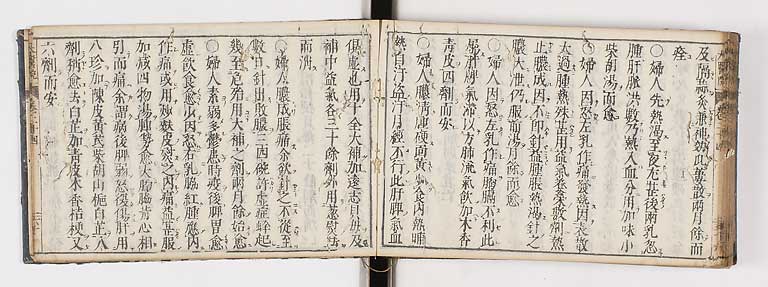 及隔蒜灸兼神効瓜蔞散兩月餘而
痊
〇婦人先熱渴至夜尤甚後兩乳忽
腫肝脉洪數乃熱入血分用加味小
柴胡湯而愈
〇婦人因怒左乳作痛發熱因表散
太過腫熱殊甚用益氣養榮數劑熱
止膿成因不即針益腫脹熱渴針之
膿大泄仍服前湯月餘而愈
〇婦人因怒左乳作痛胸膈不利此
屬肝氣滯以方脉流氣飲加木香
青皮四劑而安
〇婦人膿清腫硬面黃食少內熱晡
熱自汗盜汗月經不行此肝脾氣血
俱虛也用十全大補加遠志貝母及
補中益氣各三十餘劑外用葱熨
而消
〇婦人膿成脹痛余欲針之不從至
數日針出敗膿三四碗許虛症蜂起
幾至危殆用大補之劑兩月餘始愈
〇婦人素弱多鬱焦時疫後脾胃愈
虛飲食愈少因怒右乳脇紅腫應內
作痛或用炒麩皮熨之內痛益甚服
加減四物湯腫勢愈大胸脇背心相
引而痛余謂腐後脾弱怒復傷肝用
八珍加陳皮黃芪柴胡山梔白芷八
劑稍愈去白芷加青皮木香桔梗又
六劑而安